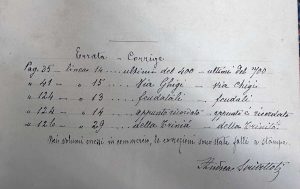 Errata - Corrige
Pag. 35 - linea 14 ... ultimi del 400 - ultimi del 700
" 41 - " 15 - Via Ghigi - via Chigi
" 124 - " 13 - feudatali - feudali
" 124 - " 14 - appunto ricordato - appunto è ricordato
" 126 - " 29 - della Trinià - della Trinità
Nei volumi messi in commercio, le correzioni sono state fatte a stampa.